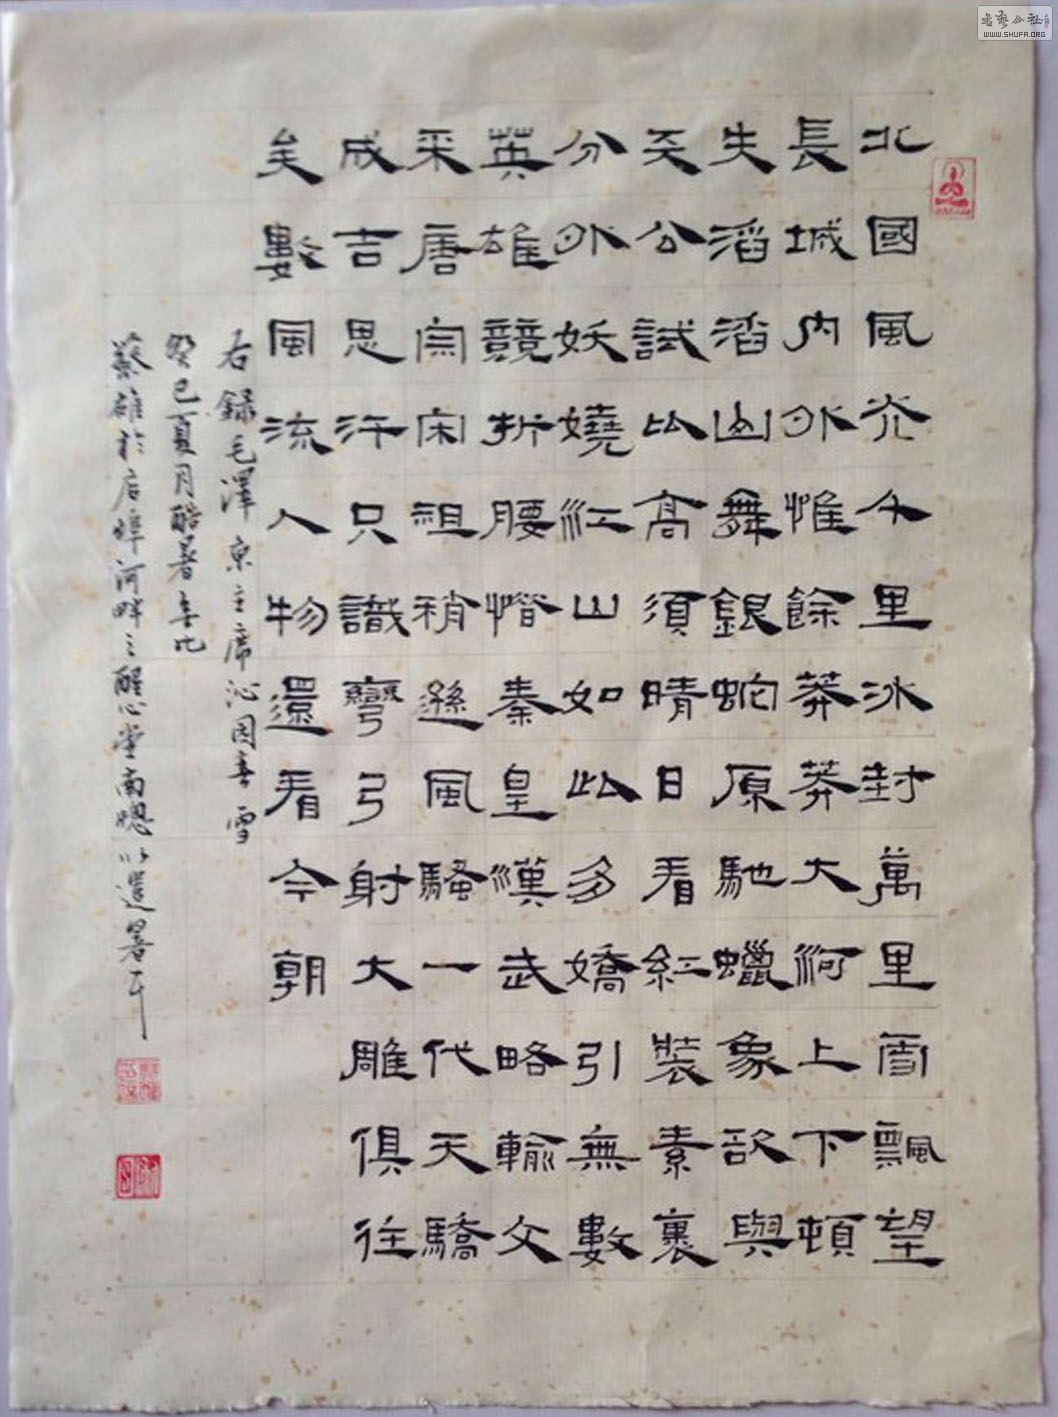 北國風光千里冰封萬里雪飄望
長城內外惟餘莽莽大河上下頓
失滔滔山舞銀蛇原馳蠟象欲與
天公試比高須晴日看紅裝素裹
分外妖嬈江山如此多嬌引無數
英雄競折腰惜秦皇漢武略輸文
采唐宗宋祖稍遜風騷一代天驕
成吉思汗只識彎弓射大雕俱往
矣數風流人物還看今朝
右録毛澤東主席沁園春雪
癸巳夏月酷暑無比
蔡雄於后河畔之醒心堂南牕以遣暑耳
書藝公社
WWW.SHUFA.ORG